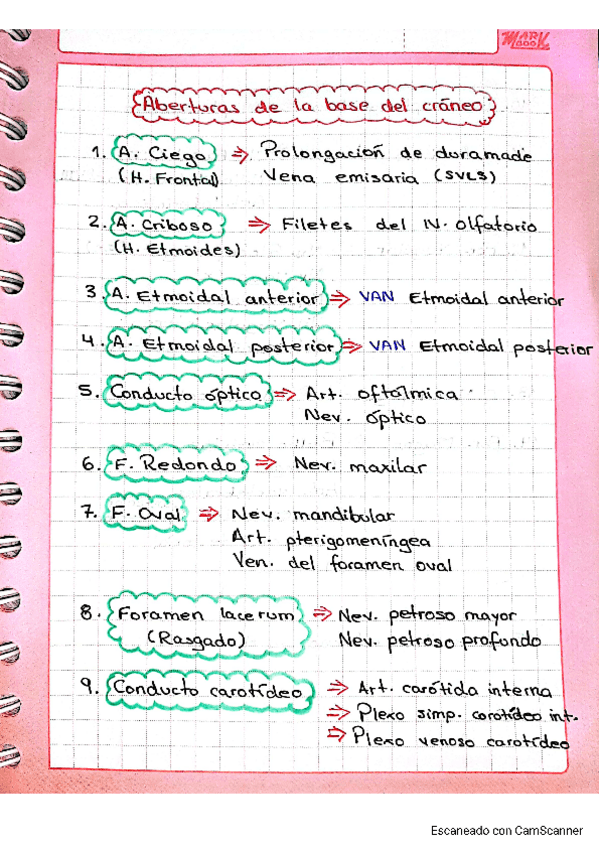 MARK
BOOK
Aberturas de la base del cráneo
1. A. Ciego ⇒ Prolongación de duramade
(H. Frontal) Vena emisaria (SVLS)
2. A. Criboso ⇒ Filetes del N. olfatorio
(H. Etmoides)
3. A. Etmoidal anterior ⇒ VAN Etmoidal anterior
4. A. Etmoidal posterior ⇒ VAN Etmoidal posterior
5. Conducto óptico ⇒ Art. oftálmica
Nev. óptico
6. F. Redondo ⇒ Nev. maxilar
7. F. Oval ⇒ Nev. mandibular
Art. pterigomeníngea
Ven. del foramen oval
8. Foramen lacerum ⇒ Nev. petroso mayor
(Rasgado) Nev. petroso profundo
9. Conducto carotídeo ⇒ Art. carótida interna
⇒ Plexo simp. carotídeo int.
⇒ Plexo venoso carotídeo
Escaneado con CamScanner